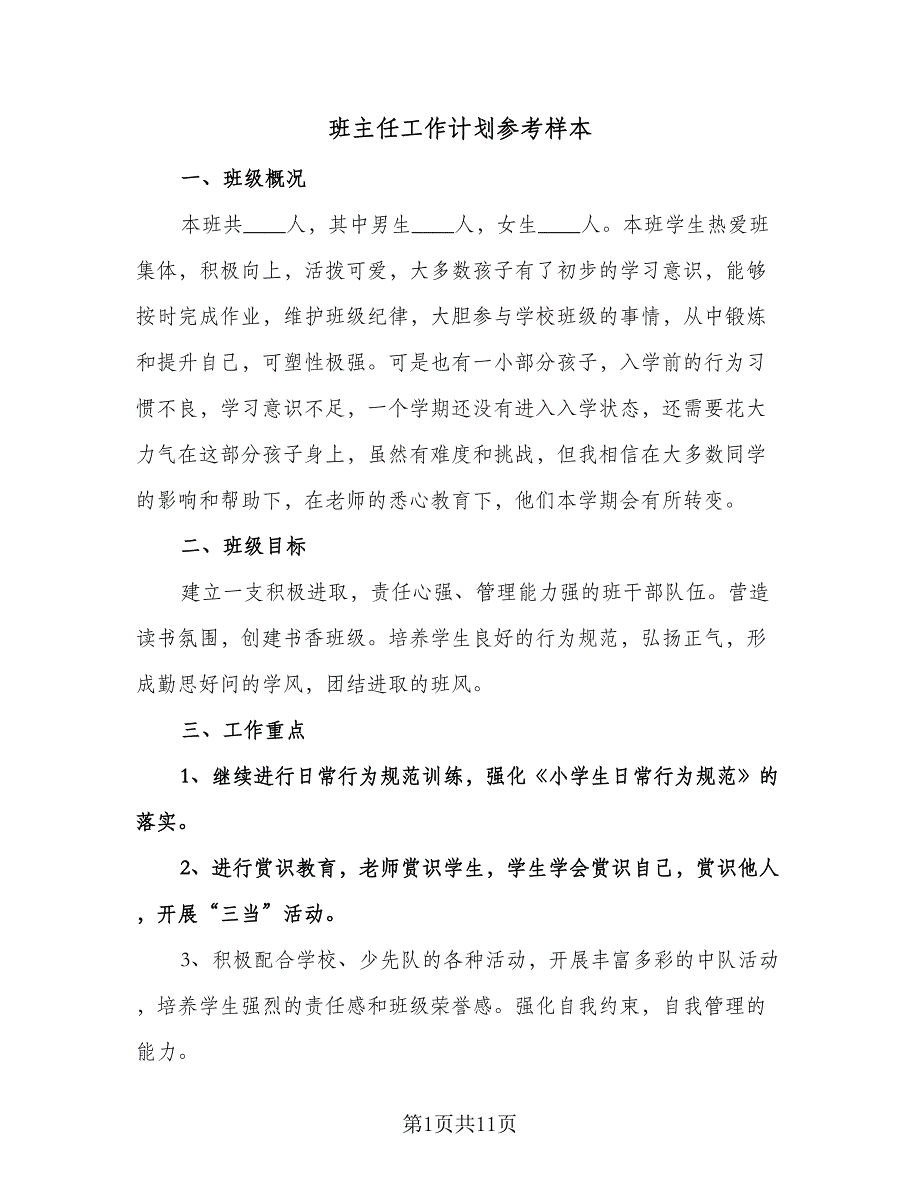 班主任工作计划参考样本
一、班级概况
本班共____人，其中男生____人，女生____人。本班学生热爱班
集体，积极向上，活拨可爱，大多数孩子有了初步的学习意识，能够
按时完成作业，维护班级纪律，大胆参与学校班级的事情，从中锻炼
和提升自己，可塑性极强。可是也有一小部分孩子，入学前的行为习
惯不良，学习意识不足，一个学期还没有进入入学状态，还需要花大
力气在这部分孩子身上，虽然有难度和挑战，但我相信在大多数同学
的影响和帮助下，在老师的悉心教育下，他们本学期会有所转变。
二、班级目标
建立一支积极进取，责任心强、管理能力强的班干部队伍。营造
读书氛围，创建书香班级。培养学生良好的行为规范，弘扬正气，形
成勤思好问的学风，团结进取的班风。
三、工作重点
1、继续进行日常行为规范训练，强化《小学生日常行为规范》的
落实。
2、进行赏识教育，老师赏识学生，学生学会赏识自己，赏识他人
，开展“三当”活动。
3、积极配合学校、少先队的各种活动，开展丰富多彩的中队活动
，培养学生强烈的责任感和班级荣誉感。强化自我约束，自我管理的
能力。
第1页共11页